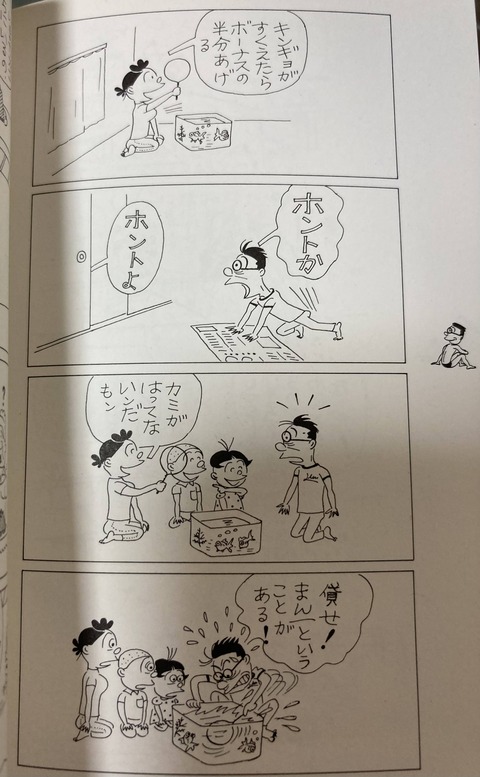 キンギョが
すくえたら
ボーナスの
半分あげ
る
ホントか
ホントよ
カミが
はってな
いンだ
もン
貸せ!
まん一という
ことが
ある!